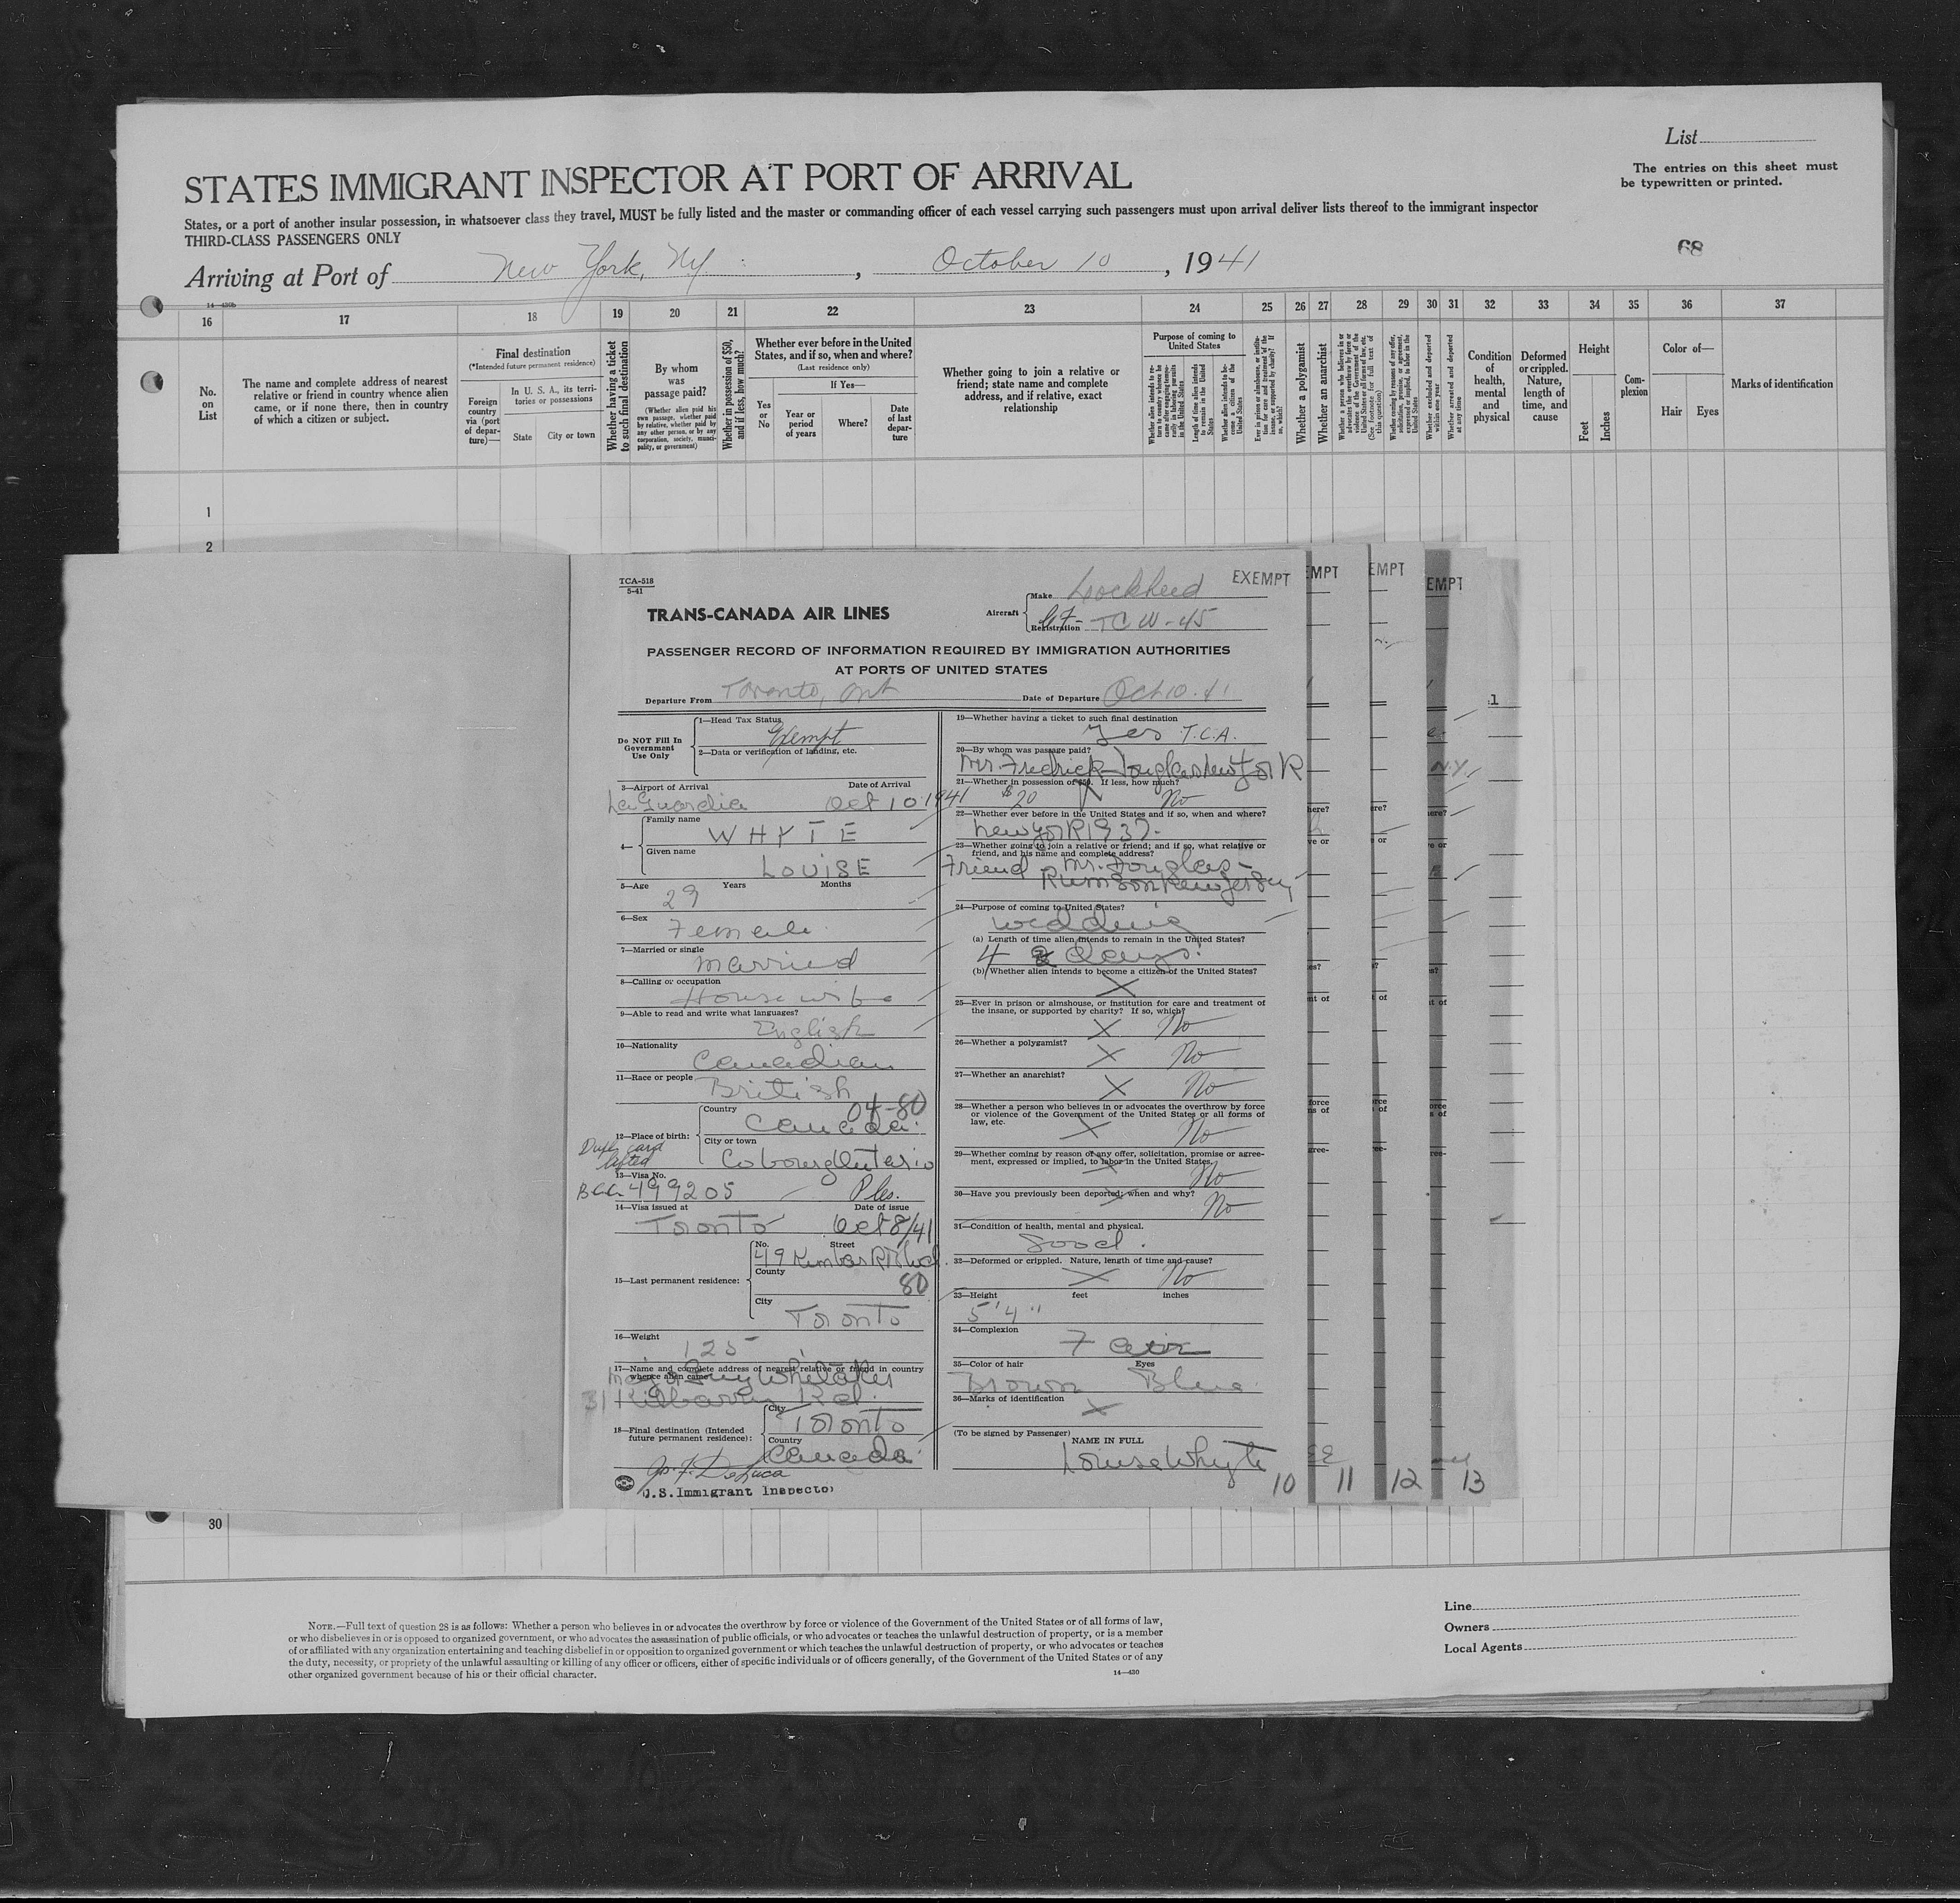 List
The entries on this sheet must
be typewritten or printed.
STATES IMMIGRANT INSPECTOR AT PORT OF ARRIVAL
States, or a port of another insular possession, in whatsoever class they travel, MUST be fully listed and the master or commanding officer of each vessel carrying such passengers must upon arrival deliver lists thereof to the immigrant inspector
THIRD-CLASS PASSENGERS ONLY
68
Arriving at Port of New York, NY. , October 10 , 1941
14—430b
16 17 18 19 20 21 22 23 24 25 26 27 28 29 30 31 32 33 34 35 36 37
No. on List
The name and complete address of nearest
relative or friend in country whence alien
came, or if none there, then in country
of which a citizen or subject.
Final destination
(*Intended future permanent residence)
Foreign country via (port of departure)—
In U. S. A., its territories or possessions
State City or town
Whether having a ticket to such final destination
By whom was passage paid?
(Whether alien paid his own passage, whether paid by relative, whether paid by any other person, or by any corporation, society, municipality, or government)
Whether in possession of $50, and if less, how much?
Whether ever before in the United
States, and if so, when and where?
(Last residence only)
Yes or No
If Yes—
Year or period of years
Where?
Date of last departure
Whether going to join a relative or
friend; state name and complete
address, and if relative, exact
relationship
Purpose of coming to United States
Whether alien intends to return to country whence he came after engaging temporarily in laboring pursuits in the United States
Length of time alien intends to remain in the United States
Whether alien intends to become a citizen of the United States
Ever in prison or almshouse, or institution for care and treatment of the insane, or supported by charity? If so, which?
Whether a polygamist
Whether an anarchist
Whether a person who believes in or advocates the overthrow by force or violence of the Government of the United States or all forms of law, etc. (See footnote for full text of this question)
Whether coming by reasons of any offer, solicitation, promise, or agreement, expressed or implied, to labor in the United States
Whether excluded and deported within one year
Whether arrested and deported at any time
Condition of health, mental and physical
Deformed or crippled. Nature, length of time, and cause
Height
Feet Inches
Complexion
Color of—
Hair Eyes
Marks of identification
1
2
TCA-518
5-41
TRANS-CANADA AIR LINES
Aircraft
Make Lockheed
Registration CF-TCW-45
EXEMPT
EMPT
EMPT
EMPT
PASSENGER RECORD OF INFORMATION REQUIRED BY IMMIGRATION AUTHORITIES
AT PORTS OF UNITED STATES
Departure From Toronto, Ont Date of Departure Oct 10-41
Do NOT Fill In
Government
Use Only
1—Head Tax Status
Exempt
2—Data or verification of landing, etc.
3—Airport of Arrival Date of Arrival
La Guardia Oct 10 1941
4—
Family name
WHYTE
Given name
LOUISE
5—Age Years Months
29
6—Sex
Female
7—Married or single
Married
8—Calling or occupation
Housewife
9—Able to read and write what languages?
English
10—Nationality
Canadian
11—Race or people
British
12—Place of birth:
Country 04-80
Canada.
City or town
Cobourg Ontario
Dupl. card
lifted
13—Visa No.
BCC 499205
14—Visa issued at Date of issue
Toronto Oct 8/41
15—Last permanent residence:
No. Street
49
County
80
City
Toronto
16—Weight
125
17—Name and complete address of nearest relative or friend in country
whence alien came
Major Guy Whitaker
31 Kilbarry Rd.
18—Final destination (Intended
future permanent residence):
City
Toronto
Country
Canada.
Jos. F. DeLuca
U.S. Immigrant Inspector
19—Whether having a ticket to such final destination
Yes T.C.A.
20—By whom was passage paid?
Mr. Fredrick Douglas New York
21—Whether in possession of $50. If less, how much?
$20 No
22—Whether ever before in the United States and if so, when and where?
New York 1937.
23—Whether going to join a relative or friend; and if so, what relative or
friend, and his name and complete address?
Friend Mr. Douglas-
Rumson New Jersey
24—Purpose of coming to United States?
wedding
(a) Length of time alien intends to remain in the United States?
4 days.
(b) Whether alien intends to become a citizen of the United States?
X
25—Ever in prison or almshouse, or institution for care and treatment of
the insane, or supported by charity? If so, which?
X No
26—Whether a polygamist?
X No
27—Whether an anarchist?
X No
28—Whether a person who believes in or advocates the overthrow by force
or violence of the Government of the United States or all forms of
law, etc.
X No
29—Whether coming by reason of any offer, solicitation, promise or agree-
ment, expressed or implied, to labor in the United States.
X No
30—Have you previously been deported; when and why?
X No
31—Condition of health, mental and physical.
Good.
32—Deformed or crippled. Nature, length of time and cause?
X No
33—Height feet inches
5'4"
34—Complexion
Fair
35—Color of hair Eyes
Brown Blue
36—Marks of identification
X
(To be signed by Passenger)
NAME IN FULL
Louise Whyte
10 11 12 13
30
NOTE.—Full text of question 28 is as follows: Whether a person who believes in or advocates the overthrow by force or violence of the Government of the United States or of all forms of law,
or who disbelieves in or is opposed to organized government, or who advocates the assassination of public officials, or who advocates or teaches the unlawful destruction of property, or is a member
of or affiliated with any organization entertaining and teaching disbelief in or opposition to organized government or which teaches the unlawful destruction of property, or who advocates or teaches
the duty, necessity, or propriety of the unlawful assaulting or killing of any officer or officers, either of specific individuals or of officers generally, of the Government of the United States or of any
other organized government because of his or their official character.
14—430
Line
Owners
Local Agents